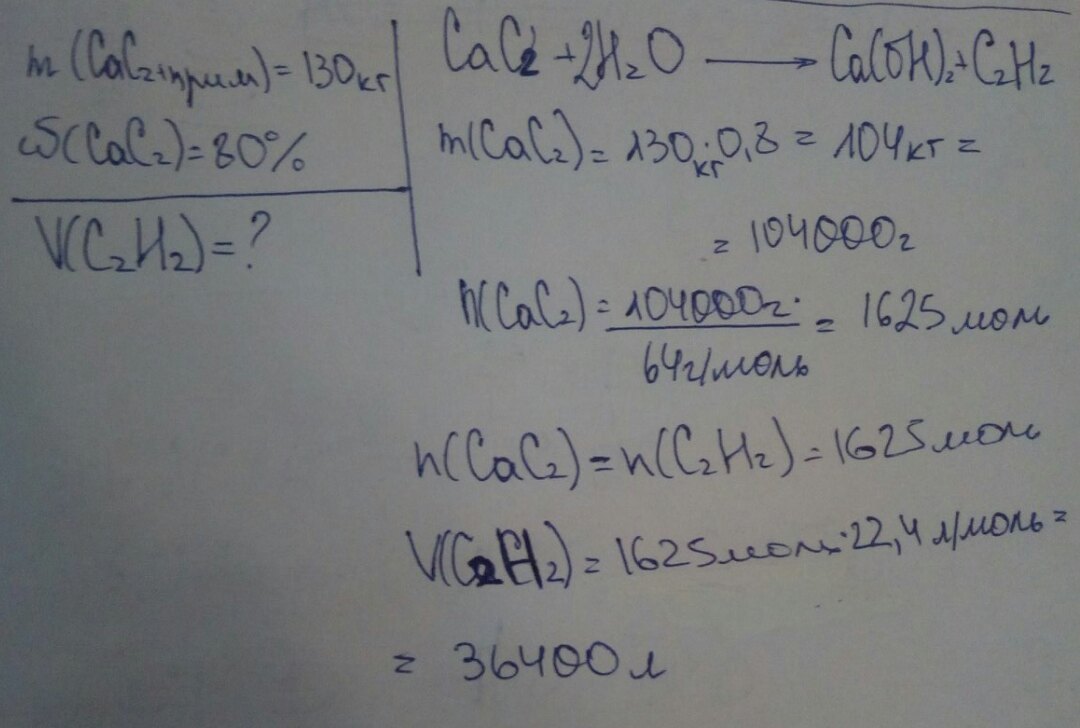 m(CaC₂+прим)=130кг
ω(CaC₂)=80%
V(C₂H₂)=?
CaC₂+2H₂O → Ca(OH)₂+C₂H₂
m(CaC₂)=130кг·0,8=104кг=
=104000г
n(CaC₂)=104000г/64г/моль=1625моль
n(CaC₂)=n(C₂H₂)=1625моль
V(C₂H₂)=1625моль·22,4л/моль=
=36400л